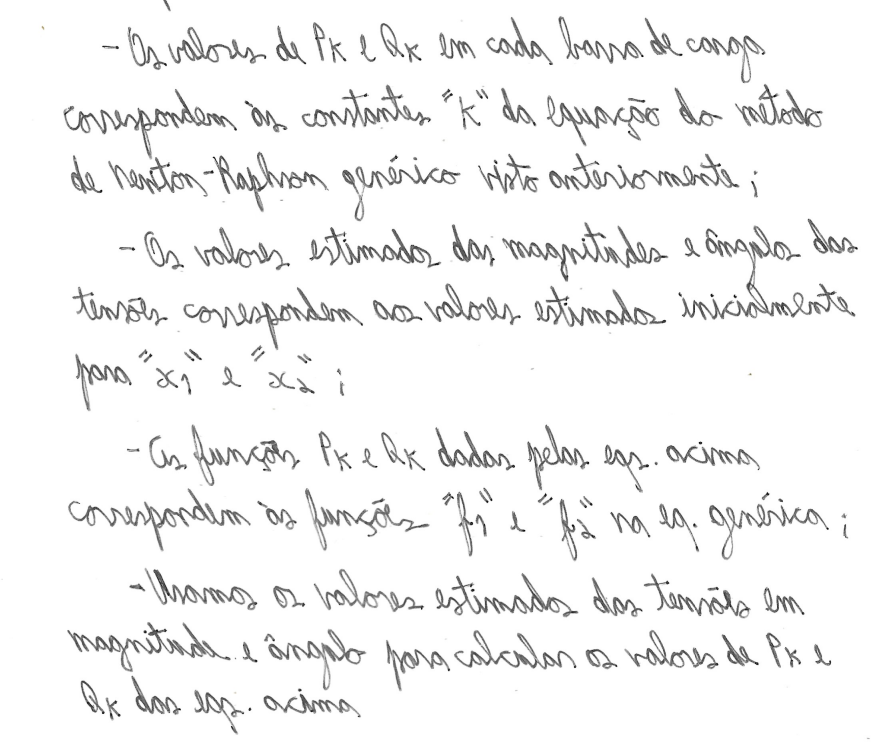 - Os valores de Pk e Qk em cada barra de carga
correspondem às constantes "k" da equação do método
de Newton-Raphson genérico visto anteriormente;
- Os valores estimados das magnitudes e ângulos das
tensões correspondem aos valores estimados inicialmente
para "x1" e "x2";
- As funções Pk e Qk dadas pelas eqs. acima
correspondem às funções "f1" e "f2" na eq. genérica;
- Usamos os valores estimados das tensões em
magnitude e ângulo para calcular os valores de Pk e
Qk das eqs. acima